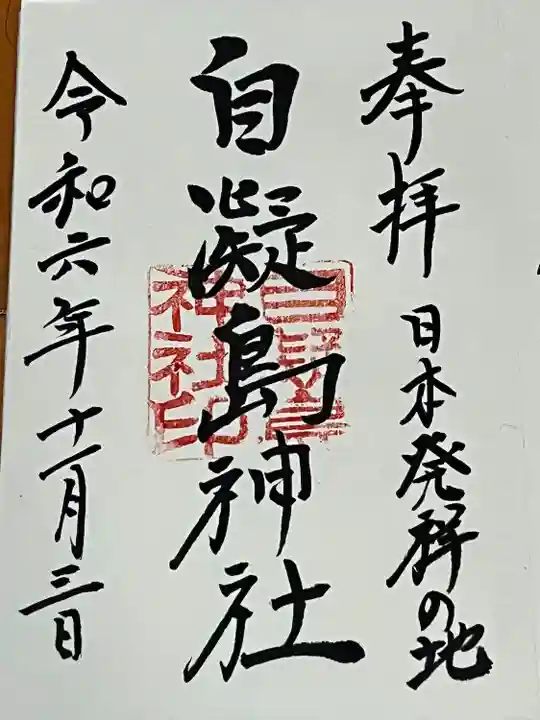 奉拝 日本発祥の地
自凝島神社
令和六年十一月三日
自凝島
神社印